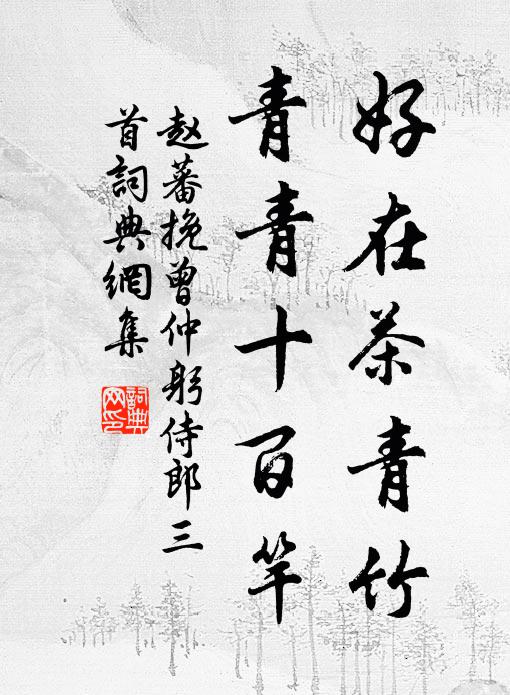 好在茶青竹
青青十百竿
赵蕃挽曾仲躬侍郎三
首詞典網集
詞典网印